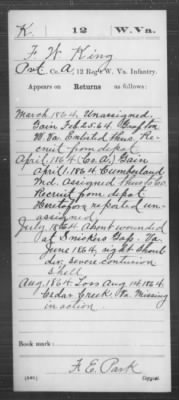 K. 12 W. Va.
F. W. King
Pvt. Co. A, 12 Reg't W. Va. Infantry.
Appears on Returns as follows:
March 1864, Unassigned.
Gain Feb. 25. 64 Grafton
W. Va. Enlisted thus. Re-
cruit from depot
April 1864 (Co. A.) Gain
April 1, 1864 Cumberland
Md. assigned thus to Co.
Recruit from depot
Heretofore reported un-
assigned.
July 1864 Absent wounded
at Snickers Gap. Va.
June 1864, right should
der, severe contusion
shell
Aug. 1864. Loss Aug. 14, 1864
Cedar Creek Va. Missing
in action
Book mark:
F. E. Park
(546) Copyist.